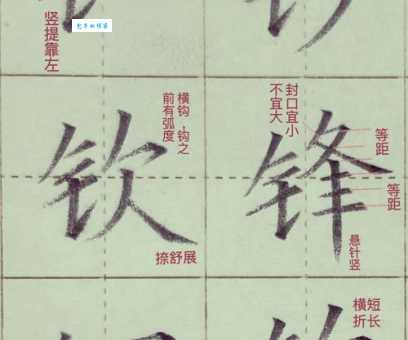 竖提靠左
横钩,钩之
前有弧度
钦
捺舒展
封口宜小
不宜大
锋
等距
等距
悬针竖
横短
折长